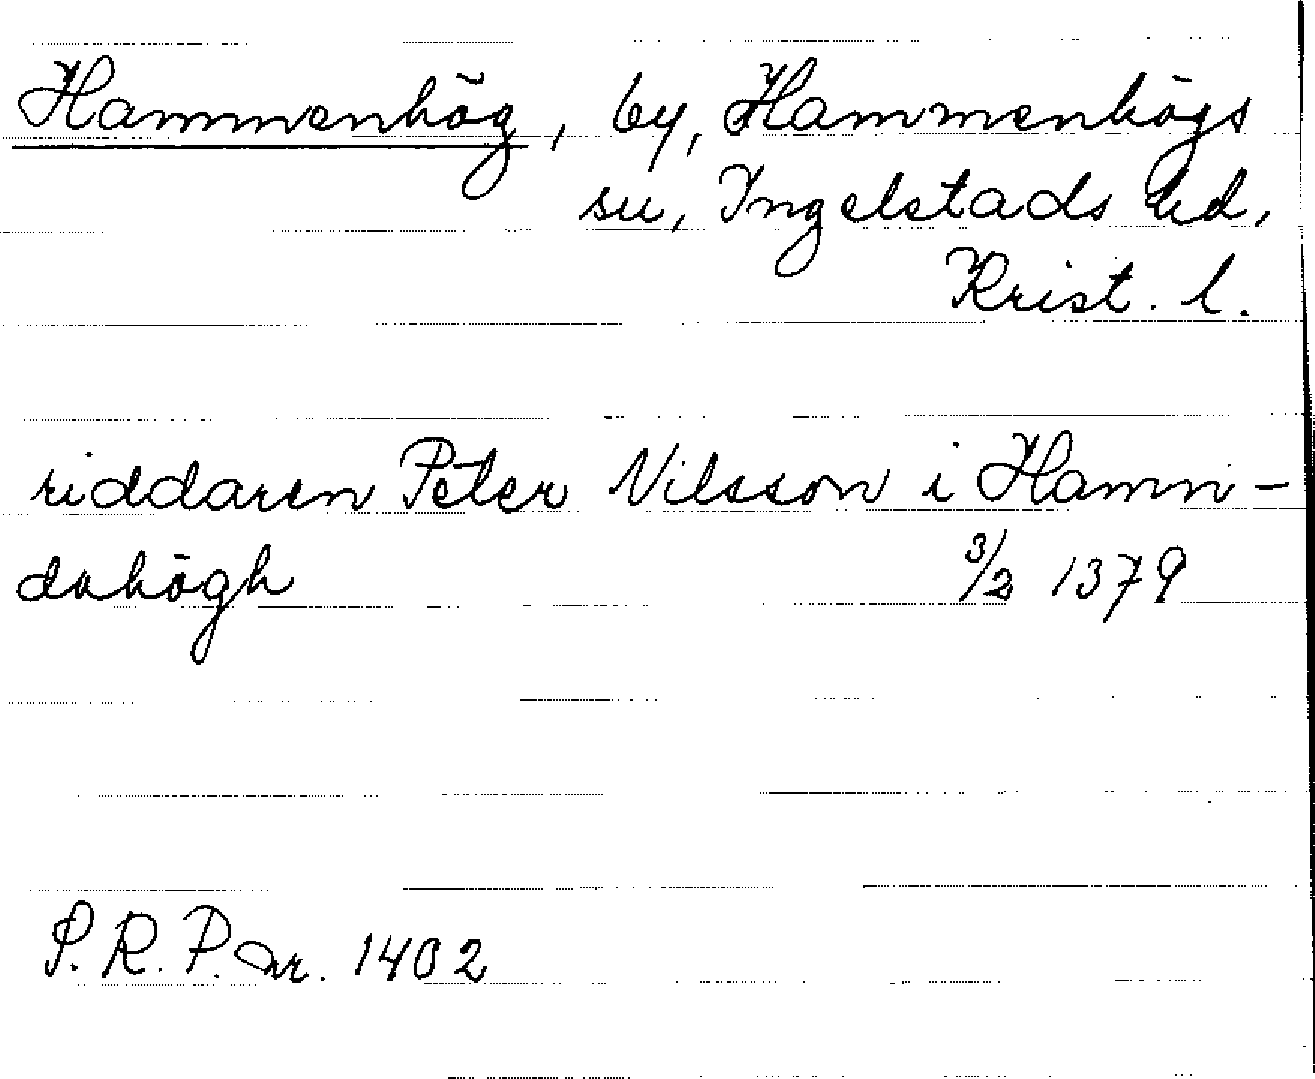 Hammenhög, by, Hammenhögs
sn, Ingelstads hd,
Krist. l.
riddaren Peter Nilsson i Hamn-
dahögh 3/2 1379
S.R.P. nr. 1402